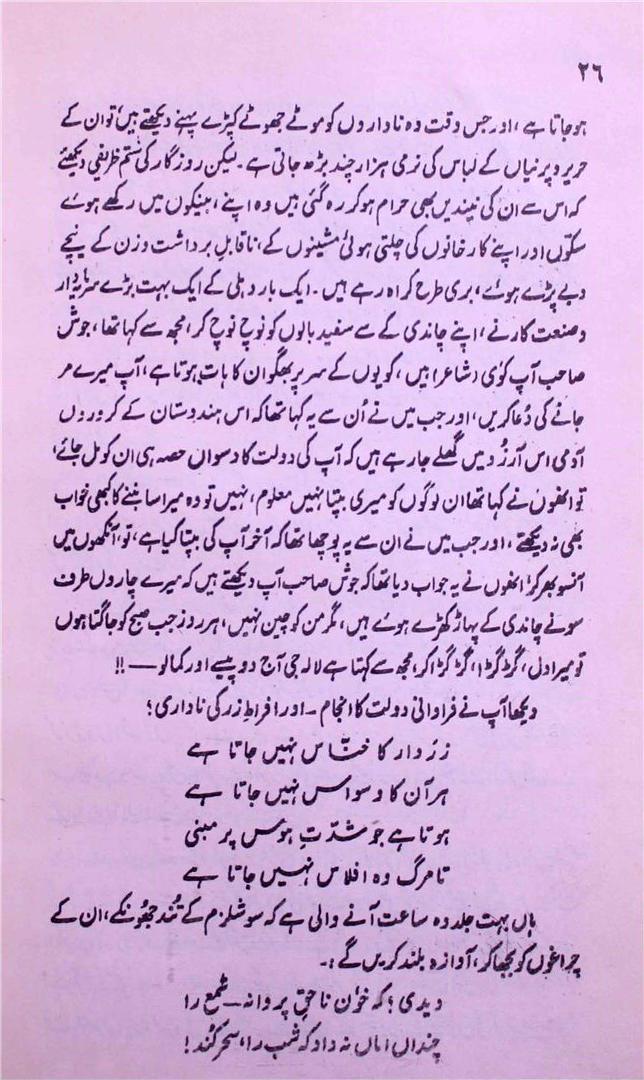 ۲۶
ہوجاتا ہے، اور جس وقت وہ ناداروں کو موٹے جھوٹے کپڑے پہنے دیکھتے ہیں، تو ان کے
حریر و پرنیاں کے لباس کی نرمی ہزار چند بڑھ جاتی ہے۔ لیکن روزگار کی ستم ظریفی دیکھئے
کہ اس سے ان کی نیندیں بھی حرام ہو کر رہ گئی ہیں وہ اپنے، بینکوں میں رکھے ہوئے
سکّوں اور اپنے کارخانوں کی چلتی ہوئی مشینوں کے، ناقابلِ برداشت وزن کے نیچے
دبے پڑے ہوئے، بری طرح کراہ رہے ہیں۔ ایک بار دہلی کے ایک بہت بڑے سرمایہ دار
و صنعت کار نے، اپنے چاندی کے سے سفید بالوں کو نوچ نوچ کر، مجھ سے کہا تھا، جوش
صاحب آپ کوی (شاعر) ہیں، کویوں کے سر پر بھگوان کا ہات ہوتا ہے، آپ میرے مر
جانے کی دُعا کریں، اور جب میں نے اُن سے یہ کہا تھا کہ اس ہندوستان کے کروروں
آدمی اس آرزو میں گھلے جا رہے ہیں کہ آپ کی دولت کا دسواں حصہ ہی ان کو مل جائے،
تو انھوں نے کہا تھا ان لوگوں کو میری بپتا نہیں معلوم، نہیں تو وہ میرا سا بننے کا کبھی خواب
بھی نہ دیکھتے، اور جب میں نے ان سے یہ پوچھا تھا کہ آخر آپ کی بپتا کیا ہے، تو، آنکھوں میں
آنسو بھر کر، انھوں نے یہ جواب دیا تھا کہ جوش صاحب آپ دیکھتے ہیں کہ میرے چاروں طرف
سونے چاندی کے پہاڑ کھڑے ہوئے ہیں، مگر من کو چین نہیں، ہر روز جب صبح کو جاگتا ہوں
تو میرا دل، گڑگڑا، گڑگڑا کر، مجھ سے کہتا ہے لالہ جی آج دو پیسے اور کمالو — !!
دیکھا آپ نے فراوانی دولت کا انجام ۔ اور افراطِ زر کی ناداری؟
زردار کا خنّاس نہیں جاتا ہے
ہر آن کا وسواس نہیں جاتا ہے
ہوتا ہے جو شدّتِ ہوس پر مبنی
تا مرگ وہ افلاس نہیں جاتا ہے
ہاں بہت جلد وہ ساعت آنے والی ہے کہ سوشلزم کے تُند جھونکے، ان کے
چراغوں کو بجھا کر، آوازہ بلند کریں گے:۔
دیدی؟ کہ خونِ ناحقِ پروانہ — شمع را
چنداں اماں نہ داد کہ شب را، سحر کُند!